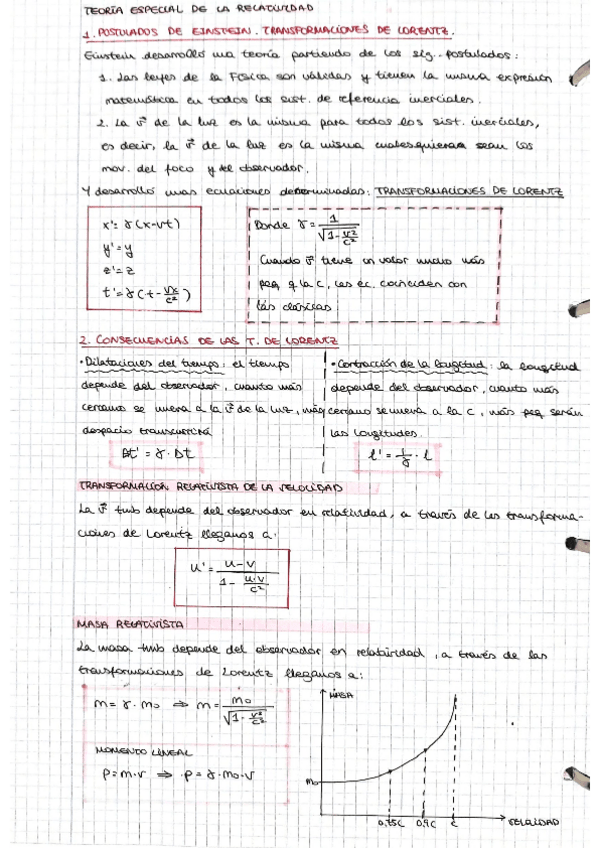 TEORÍA ESPECIAL DE LA RELATIVIDAD
1. POSTULADOS DE EINSTEIN. TRANSFORMACIONES DE LORENTZ.
Einstein desarrolló una teoría partiendo de los sig. postulados:
1. Las leyes de la Física son válidas y tienen la misma expresión
matemática en todos los sist. de referencia inerciales.
2. La v⃗ de la luz es la misma para todos los sist. inerciales,
es decir, la v⃗ de la luz es la misma cualesquieran sean los
mov. del foco y del observador.
Y desarrolló unas ecuaciones denominadas: TRANSFORMACIONES DE LORENTZ
x' = γ(x-vt)
y' = y
z' = z
t' = γ(t - vx/c²)
Donde γ = 1/√(1 - v²/c²)
Cuando v⃗ tiene un valor mucho más
peq q la c, las ec. coinciden con
las clásicas
2. CONSECUENCIAS DE LAS T. DE LORENTZ
• Dilataciones del tiempo: el tiempo
depende del observador, cuanto más
cercano se mueva a la v⃗ de la luz, más
despacio transcurrirá
Δt' = γ · Δt
• Contracción de la longitud: la longitud
depende del observador, cuanto más
cercano se mueva a la c, más peq serán
las longitudes.
l' = 1/γ · l
TRANSFORMACIÓN RELATIVISTA DE LA VELOCIDAD
La v⃗ tmb depende del observador en relatividad, a través de las transforma-
ciones de Lorentz llegamos a:
u' = (u-v)/(1 - u·v/c²)
MASA RELATIVISTA
La masa tmb depende del observador en relatividad, a través de las
transformaciones de Lorentz llegamos a:
m = γ · m₀ ⇒ m = m₀/√(1 - v²/c²)
MOMENTO LINEAL
p = m·v ⇒ p = γ · m₀ · v
MASA
m₀
0,75c 0,9c c
VELOCIDAD